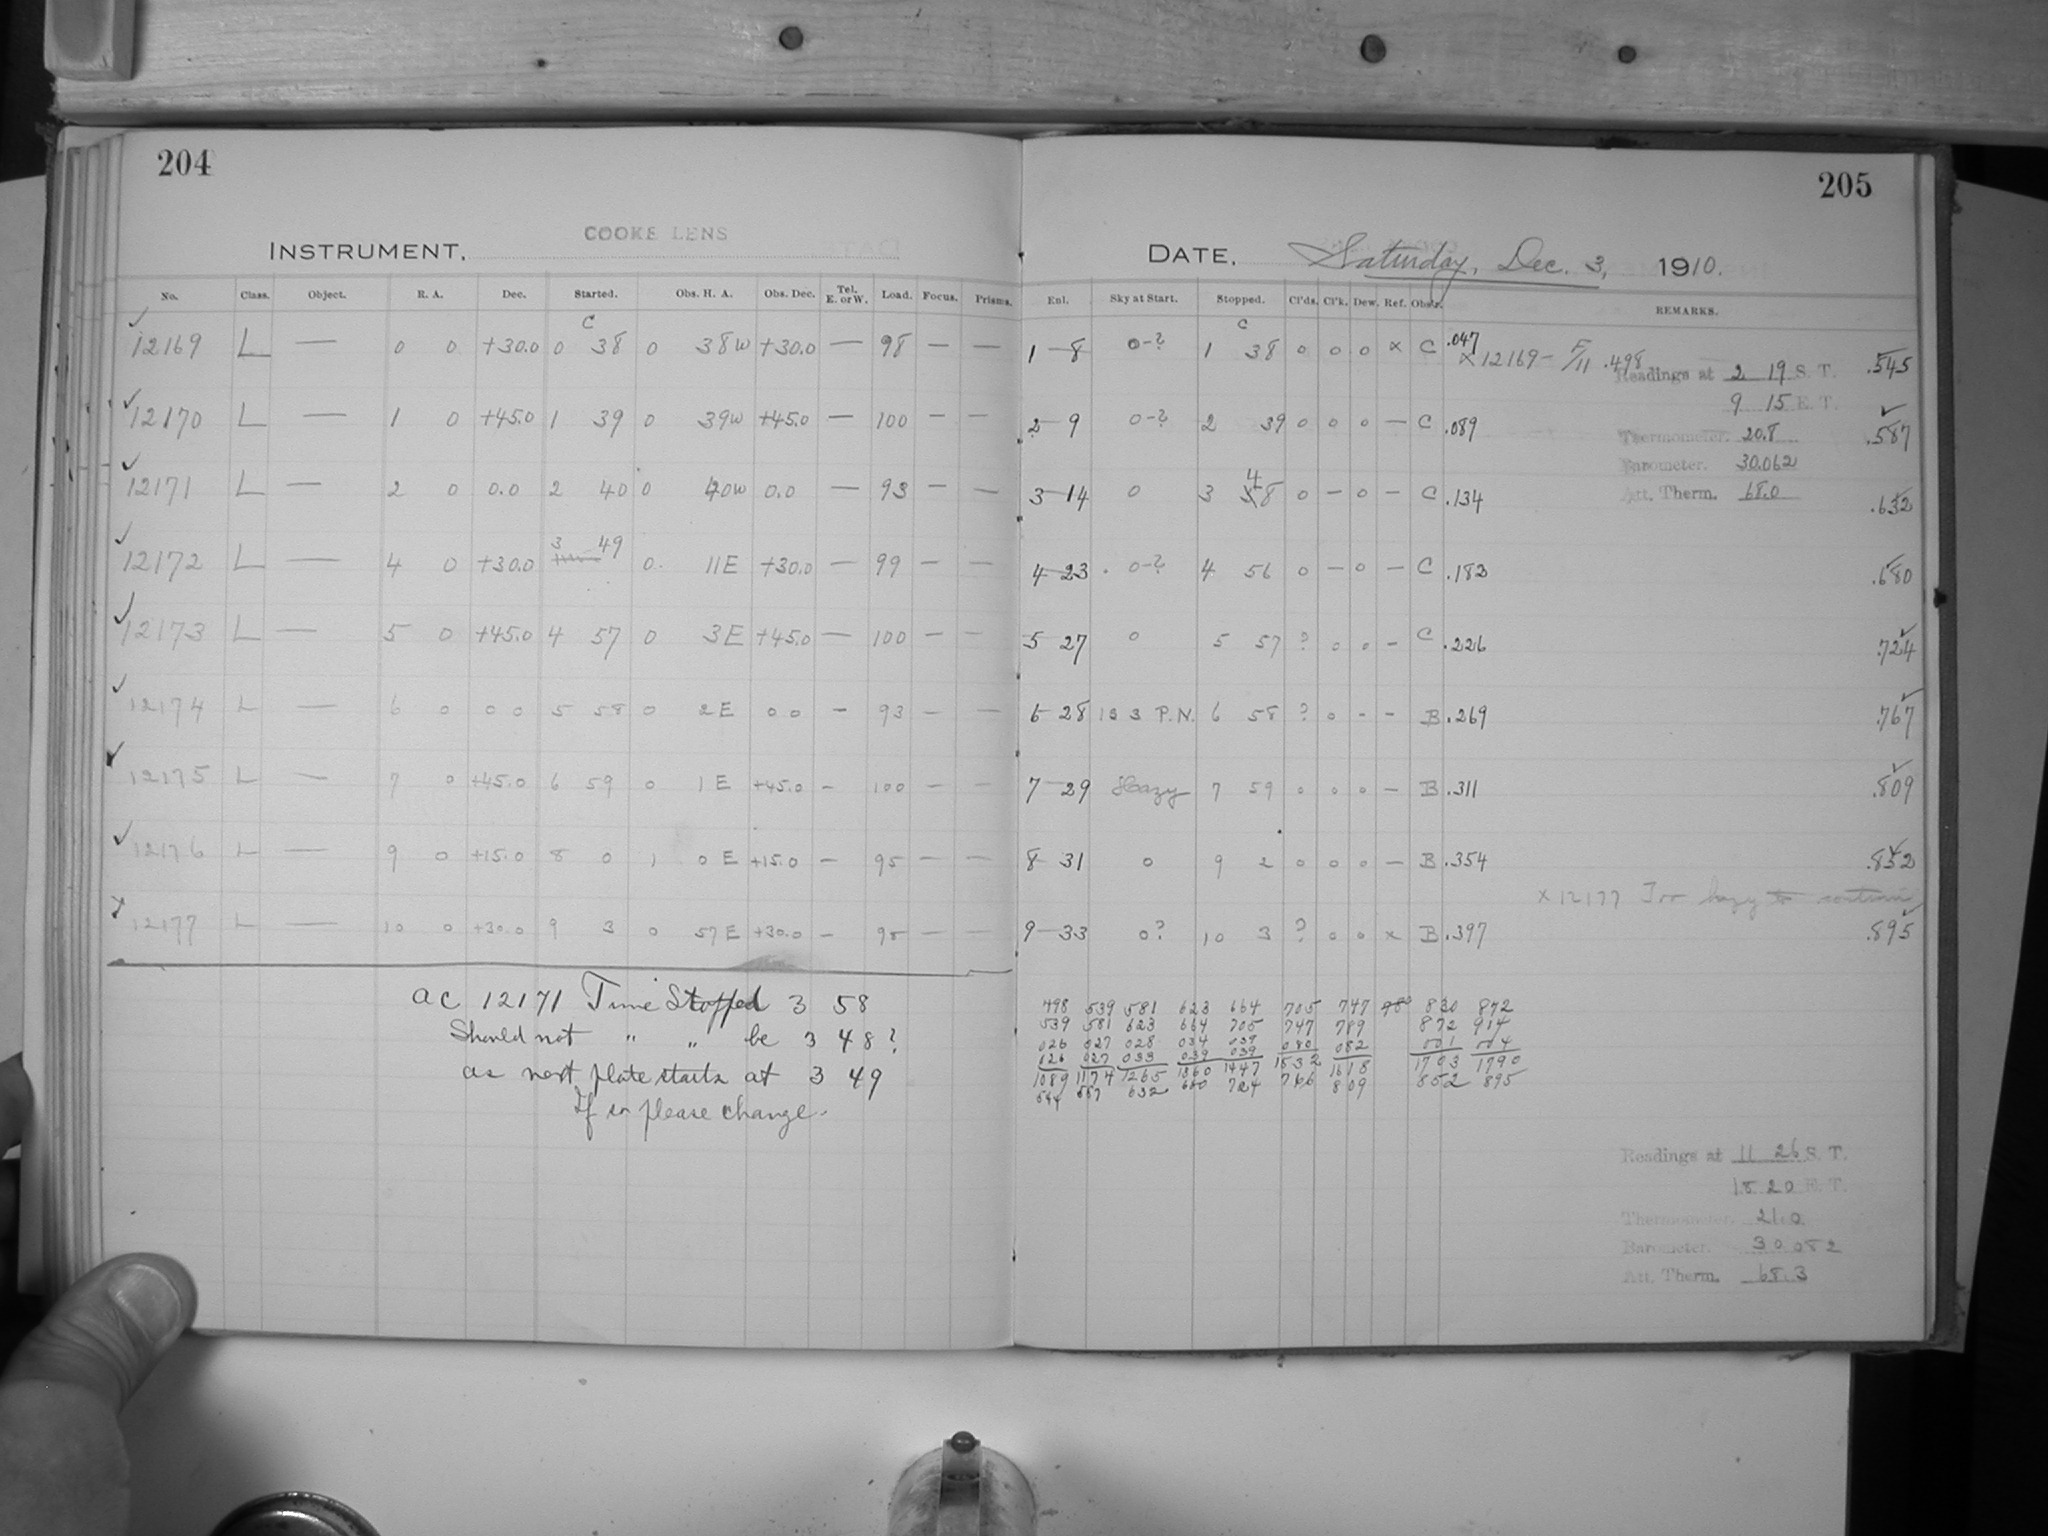 204
COOKE LENS
INSTRUMENT.
No. Class. Object. R. A. Dec. Started. Obs. H. A. Obs. Dec. Tel. E. or W. Load. Focus. Prisms.
12169 L — 0 0 +30.0 0 38 0 38W +30.0 — 98 — —
12170 L — 1 0 +45.0 1 39 0 39W +45.0 — 100 — —
12171 L — 2 0 0.0 2 40 0 40W 0.0 — 93 — —
12172 L — 4 0 +30.0 3 49 0. 11E +30.0 — 99 — —
12173 L — 5 0 +45.0 4 57 0 3E +45.0 — 100 — —
12174 L — 6 0 0 0 5 58 0 2E 0 0 — 93 — —
12175 L — 7 0 +45.0 6 59 0 1E +45.0 — 100 — —
12176 L — 9 0 +15.0 8 0 1 0E +15.0 — 95 — —
12177 L — 10 0 +30.0 9 3 0 57E +30.0 — 98 — —
ac 12171 Time Stopped 3 58
Should not " " be 3 48?
as next plate starts at 3 49
If so please change.
205
DATE. Saturday, Dec. 3, 1910.
Enl. Sky at Start. Stopped. Cl'ds. Cl'k. Dew. Ref. Obs'r. REMARKS.
1—8 0-? 1 38 0 0 0 x C .047 x 12169 — F/11 .498 .545
Readings at 2 19 S. T.
9 15 E. T.
2—9 0-? 2 39 0 0 0 — C .089 .587
Thermometer. 20.8
Barometer. 30.062
Att. Therm. 68.0
3—14 0 3 48 0 — 0 — C .134 .632
4—23 0-? 4 56 0 — 0 — C .182 .680
5 27 0 5 57 ? 0 0 — C .226 .724
6—28 133 P.N. 6 58 ? 0 - - B .269 .767
7—29 Hazy 7 59 0 0 0 — B .311 .809
8—31 0 9 2 0 0 0 — B .354 .852
x 12177 Too hazy to continue
9—33 0? 10 3 ? 0 0 x B .397 .895
498 539 581 623 664 705 747 830 872
539 581 623 664 705 747 789 872 914
026 027 028 034 039 080 082 001 004
026 027 033 039 039
1089 1174 1265 1360 1447 1532 1618 1703 1790
544 587 632 680 724 766 809 852 895
Readings at 11 26 S. T.
18 20 E. T.
Thermometer. 21.0
Barometer. 30.082
Att. Therm. 68.3